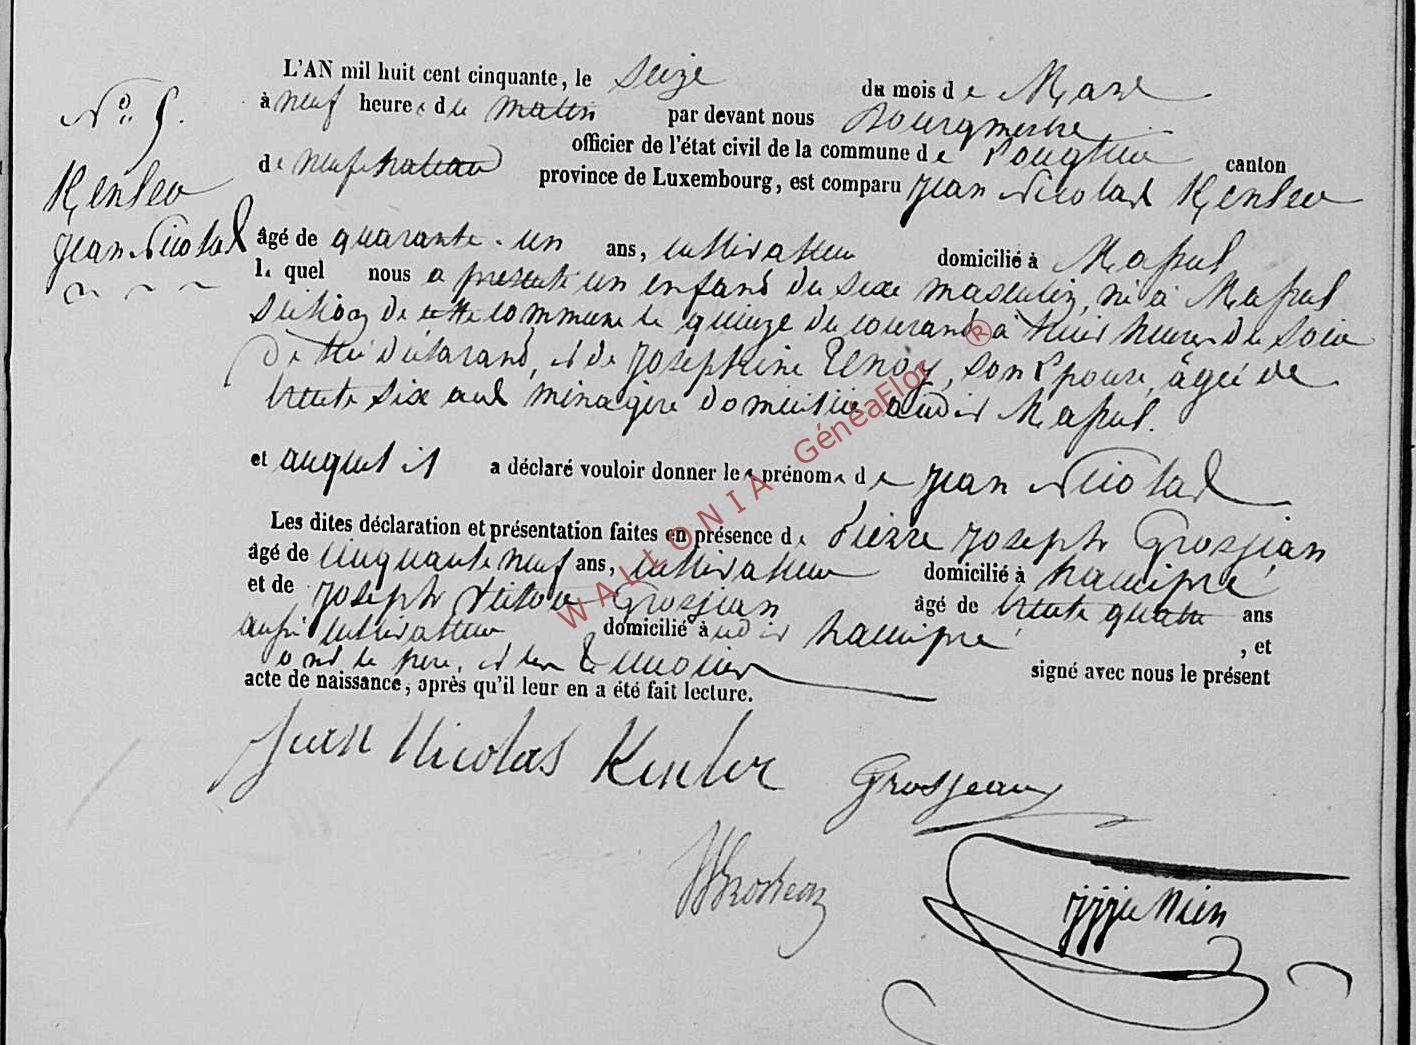 N° 5.
Kenler
Jean Nicolas
L'AN mil huit cent cinquante, le seize du mois de Mars
à neuf heures du matin par devant nous Bourgmestre
officier de l'état civil de la commune de canton
de neufchateau province de Luxembourg, est comparu Jean Nicolas Kenler
âgé de quarante-un ans, cultivateur domicilié à
lequel nous a présenté un enfant du sexe masculin, né à
Section de cette commune le quinze du courant à huit heures du soir
de lui déclarant, et de Josephine son Epouse, âgée de
trente six ans ménagère domiciliée audit
et auquel il a déclaré vouloir donner les prénoms de Jean Nicolas
Les dites déclaration et présentation faites en présence de Pierre Joseph Grosjean
âgé de cinquante neuf ans, cultivateur domicilié à hamipré
et de Joseph Grosjean âgé de trente quatre ans
aussi cultivateur domicilié audit hamipré, et
ont le père, et les témoins signé avec nous le présent
acte de naissance, après qu'il leur en a été fait lecture.
Jean Nicolas Kenler Grosjean
WALLONIA GénéaFlor ®